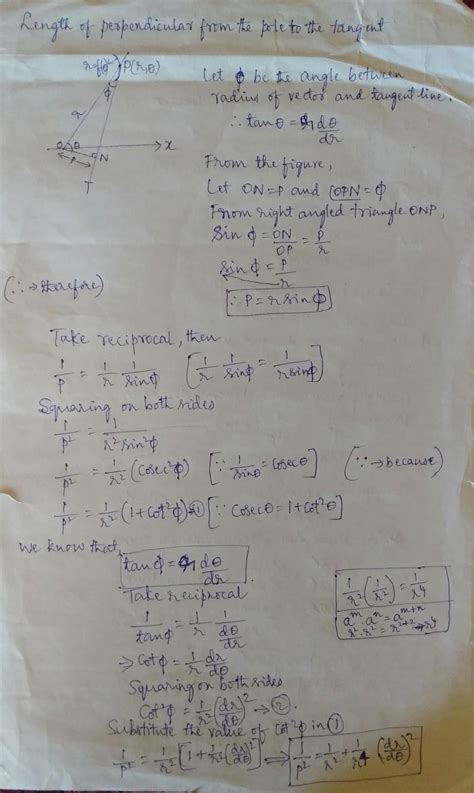 Length of perpendicular from the pole to the tangent
r=f(θ) P(r,θ)
ϕ
r
O θ N x
P
T
Let ϕ be the angle between
radius of vector and tangent line.
∴ tanθ = r dθ/dr
From the figure,
Let ON=P and OPN=ϕ
From right angled triangle ONP,
Sin ϕ = ON/OP = P/r
Sinϕ = P/r
(∴→therefore)
∴ P = r sinϕ
Take reciprocal, then
1/P = 1/r 1/sinϕ [1/r 1/sinϕ = 1/r sinϕ]
Squaring on both sides
1/P² = 1/r² sin²ϕ
1/P² = 1/r² (cosec²ϕ) [∵ 1/sinθ = cosecθ] (∵→because)
1/P² = 1/r² (1+cot²ϕ)→① [∵ Cosecθ = 1+Cot²θ]
We know that,
tanϕ = r dθ/dr.
Take reciprocal
1/tanϕ = 1/r 1/dθ/dr
1/r² (1/r²) = 1/r4
a^m . a^n = a^m+n
r² . r² = r^2+2 → r4
⇒ Cotϕ = 1/r dr/dθ
Squaring on both sides
Cot²ϕ = 1/r² (dr/dθ)² → ②.
Substitute the value of Cot²ϕ in ①
1/P² = 1/r² [1 + 1/r² (dr/dθ)²] ⇒ 1/P² = 1/r² + 1/r4 (dr/dθ)²